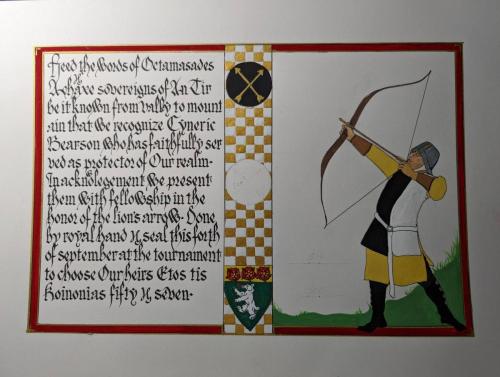 Heed the words of Octamasades
& Haxe sovereigns of An Tir
be it known from vally to mount
ain that we recognize Cyneric
Bearson who has faithfully ser
ved as protector of Our realm·
In acknolegement we present
them with fellowship in the
honor of the lion's arrow· Done
by royal hand & seal this forth
of september at the tournament
to choose Our heirs Etos tis
Koinonias fifty & seven·